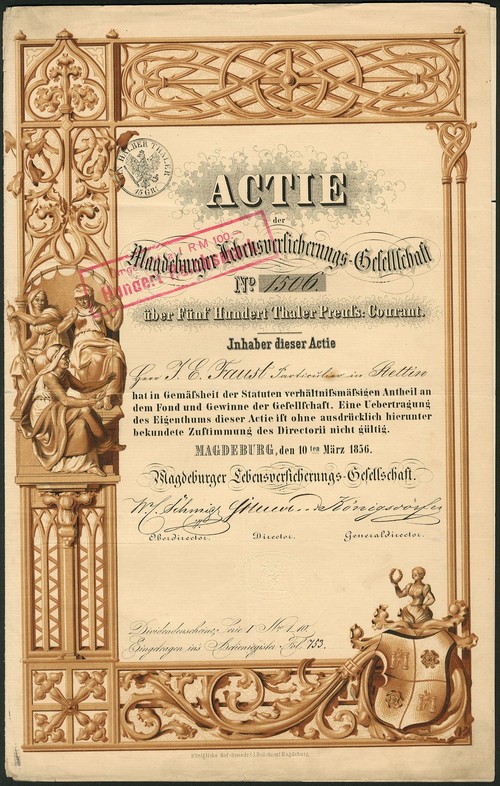 EIN HALBER THALER
15 GR.
ACTIE
der
Magdeburger Lebensversicherungs-Gesellschaft
No 1506
R M 100.–
Hundert Reichsmark
über Fünf Hundert Thaler Preuß: Courant.
Inhaber dieser Actie
Herr J. C. Faust Particulier in Stettin
hat in Gemäſsheit der Statuten verhältniſsmäſsigen Antheil an
dem Fond und Gewinne der Geſellſchaft. Eine Uebertragung
des Eigenthums dieser Actie iſt ohne ausdrücklich hierunter
bekundete Zuſtimmung des Directorii nicht gültig.
MAGDEBURG, den 10ten März 1856.
Magdeburger Lebensversicherungs-Geſellſchaft.
W. Schmidt
Königsdörfer
Oberdirector. Director. Generaldirector.
Dividendenscheine, Serie 1 No 1-10.
Eingetragen ins Actienregister Fol. 753.